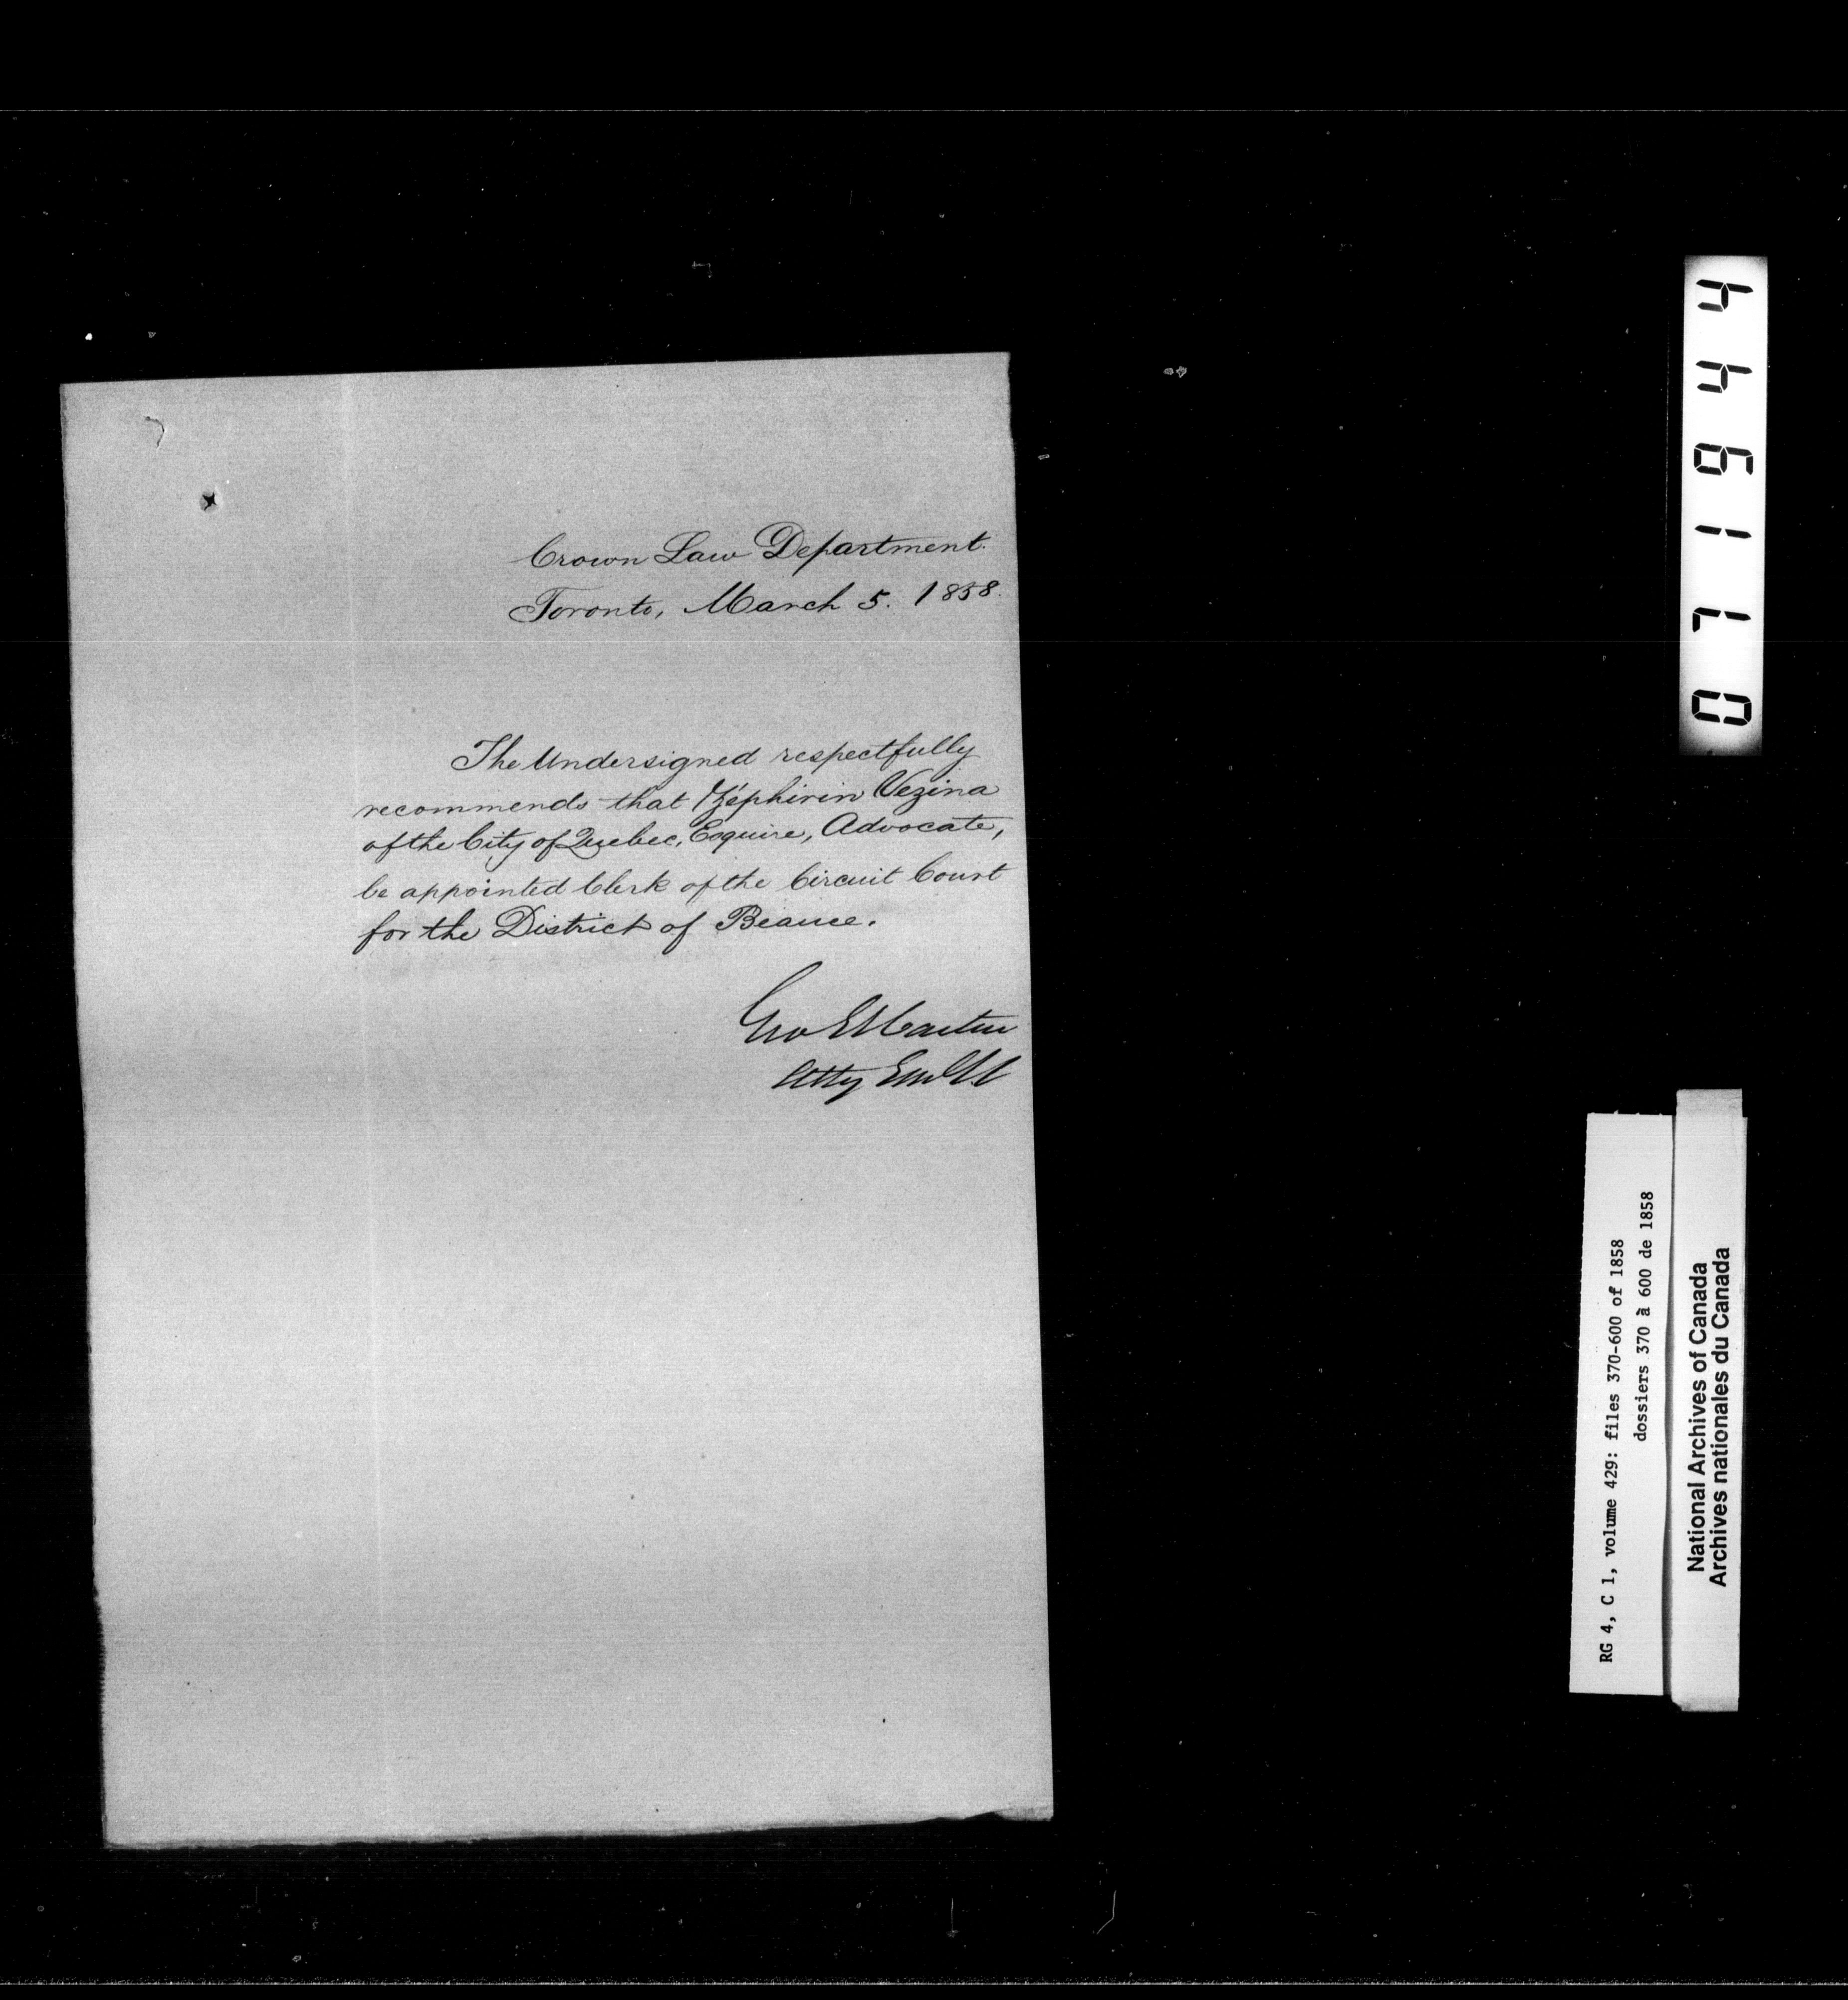 Crown Law Department.
Toronto, March 5. 1858.
The Undersigned respectfully
recommends that Zéphirin Vezina
of the City of Quebec, Esquire, Advocate,
be appointed Clerk of the Circuit Court
for the District of Beauce.
Geo E Cartier
Atty Genl
071944
RG 4, C 1, volume 429: files 370-600 of 1858
dossiers 370 à 600 de 1858
National Archives of Canada
Archives nationales du Canada